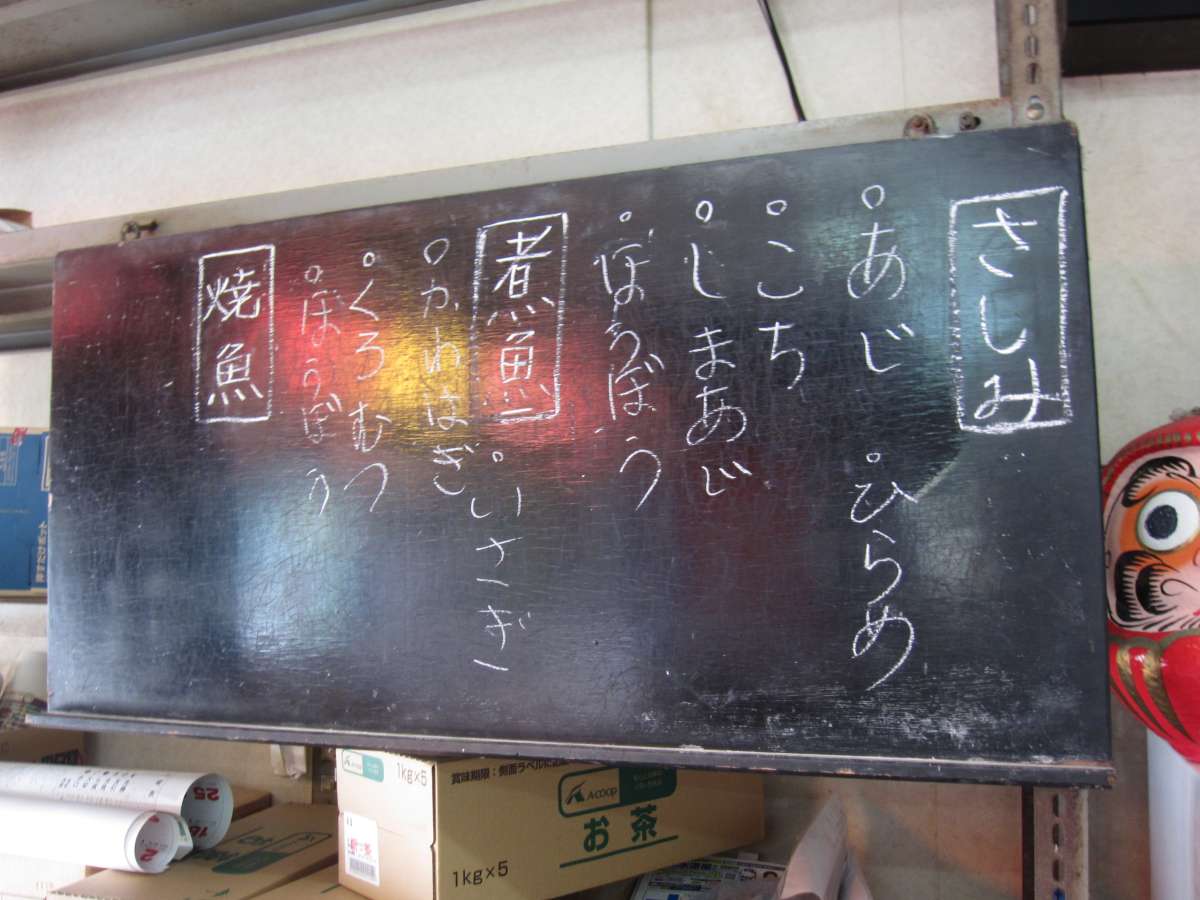 さしみ
°あじ °ひらめ
°こち
°しまあじ
°ほうぼう
煮魚
°いさぎ
°かわはぎ
°くろむつ
°ほうぼう
焼魚
1kg×5
A·COOP
お茶
1kg×5
25
2